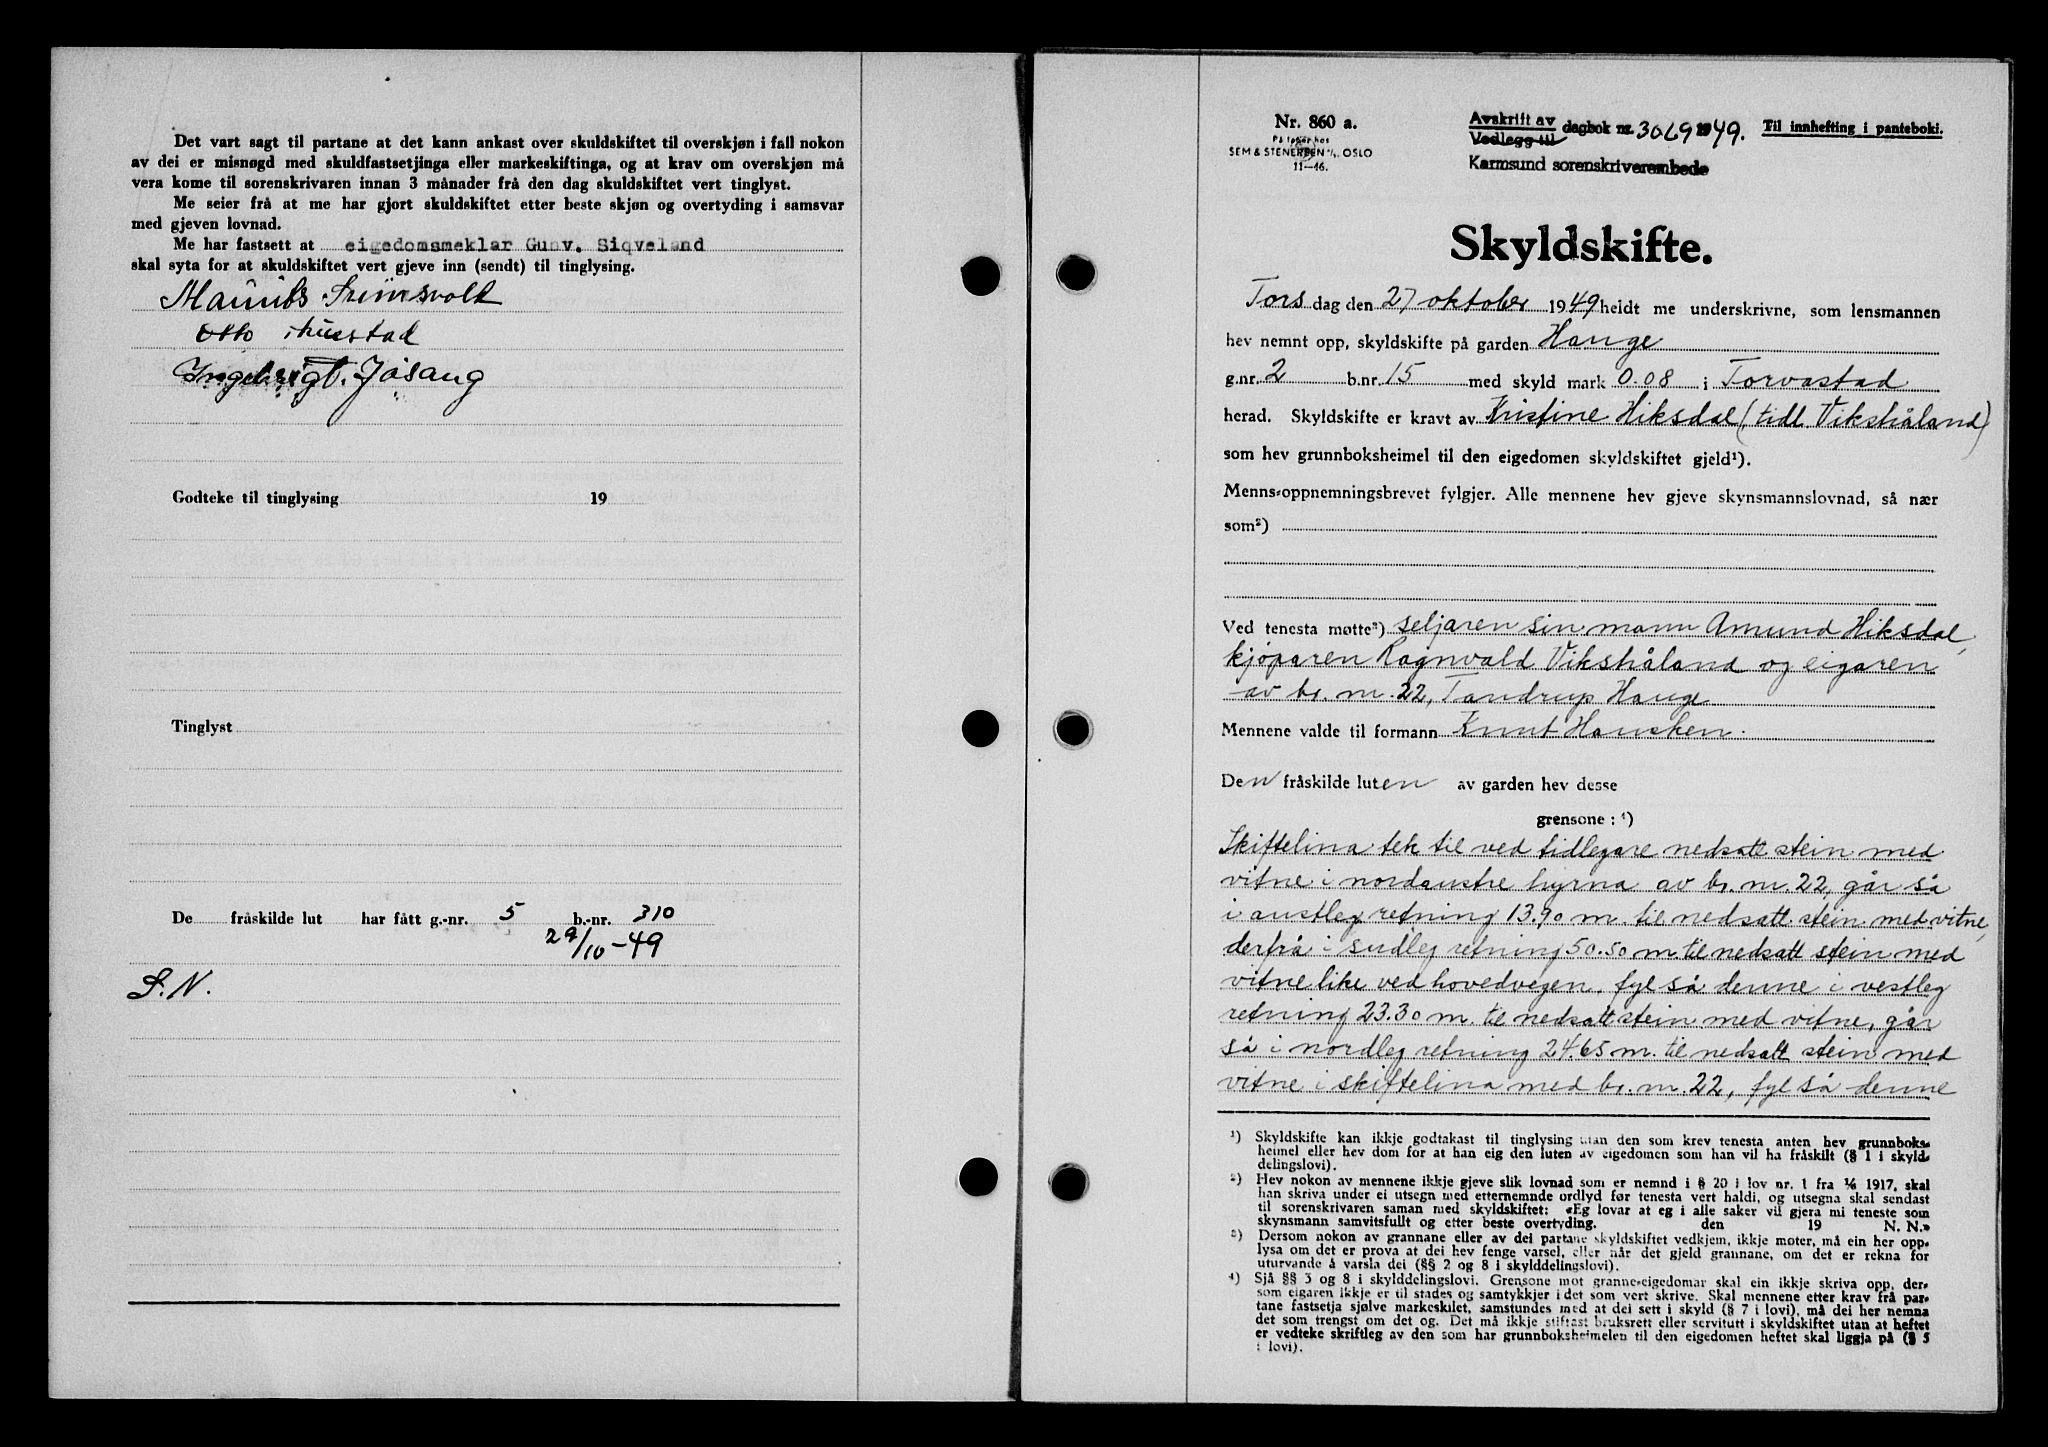 Det vart sagt til partane at det kann ankast over skuldskiftet til overskjøn i fall nokon
av dei er misnøgd med skuldfastsetjinga eller markeskiftinga, og at krav om overskjøn må
vera kome til sorenskrivaren innan 3 månader frå den dag skuldskiftet vert tinglyst.
Me seier frå at me har gjort skuldskiftet etter beste skjøn og overtyding i samsvar
med gjeven lovnad.
Me har fastsett at eigedomsmeklar Gunv. Siqveland
skal syta for at skuldskiftet vert gjeve inn (sendt) til tinglysing.
Otto
Ingebrigt. Jøsang
Godteke til tinglysing 19
Tinglyst
De fråskilde lut har fått g.-nr. 5 b.-nr. 310
29/10-49
S.N.
Nr. 860 a.
På lager hos
SEM & STENERSEN A/S, OSLO
11—46.
Avskrift av
Vedlegg til dagbok nr. 3069 1949. Til innhefting i panteboki.
Karmsund sorenskriverembede
Skyldskifte.
Tors dag den 27 oktober 1949 heldt me underskrivne, som lensmannen
hev nemnt opp, skyldskifte på garden Hauge
g.nr. 2 b.nr. 15 med skyld mark 0.08 i Torvastad
herad. Skyldskifte er kravt av Kristine Hiksdal (tidl. Vikshåland)
som hev grunnboksheimel til den eigedomen skyldskiftet gjeld¹).
Menns-oppnemningsbrevet fylgjer. Alle mennene hev gjeve skynsmannslovnad, så nær
som²)
Ved tenesta møtte³) seljaren sin mann Amund Hiksdal,
kjøparen Ragnvald Vikshåland og eigaren
av br. nr. 22, Tandrup Hauge
Mennene valde til formann Knut Hausken.
Den fråskilde luten av garden hev desse
grensone : ⁴)
Skiftelina tek til ved tidlegare nedsatt stein med
vitne i nordaustre hyrna av br. nr. 22, går så
i austleg retning 13.90 m. til nedsatt stein med vitne,
derfrå i sudleg retning 50.50 m. til nedsatt stein med
vitne like ved hovedvegen, fyl så denne i vestleg
retning 23.30 m. til nedsatt stein med vitne, går
så i nordleg retning 24.65 m. til nedsatt stein med
vitne i skiftelina med br. nr. 22, fyl så denne
¹) Skyldskifte kan ikkje godtakast til tinglysing utan den som krev tenesta anten hev grunnboks-
heimel eller hev dom for at han eig den luten av eigedomen som han vil ha fråskilt (§ 1 i skyld-
delingslovi).
²) Hev nokon av mennene ikkje gjeve slik lovnad som er nemnd i § 20 i lov nr. 1 fra 1/6 1917, skal
han skriva under ei utsegn med etternemnde ordlyd før tenesta vert haldi, og utsegna skal sendast
til sorenskrivaren saman med skyldskiftet: «Eg lovar at eg i alle saker vil gjera mi teneste som
skynsmann samvitsfullt og etter beste overtyding. den 19 N. N.»
³) Dersom nokon av grannane eller av dei partane skyldskiftet vedkjem, ikkje møter, må ein her opp-
lysa om det er prova at dei hev fenge varsel, eller når det gjeld grannane, om det er rekna for
uturvande å varsla dei (§§ 2 og 8 i skylddelingslovi).
⁴) Sjå §§ 3 og 8 i skylddelingslovi. Grensone mot granne-eigedomar skal ein ikkje skriva opp, der-
som eigaren ikkje er til stades og samtykkjer i det som vert skrive. Skal mennene etter krav frå par-
tane fastsetja sjølve markeskilet, samstundes med at dei sett i skyld (§ 7 i lovi), må dei her nemna
det som trengst om det og. Det må ikkje stiftast bruksrett eller servitutt i skyldskiftet utan at heftet
er vedteke skriftleg av den som har grunnboksheimelen til den eigedomen heftet skal liggja på (§ 5
i lovi).